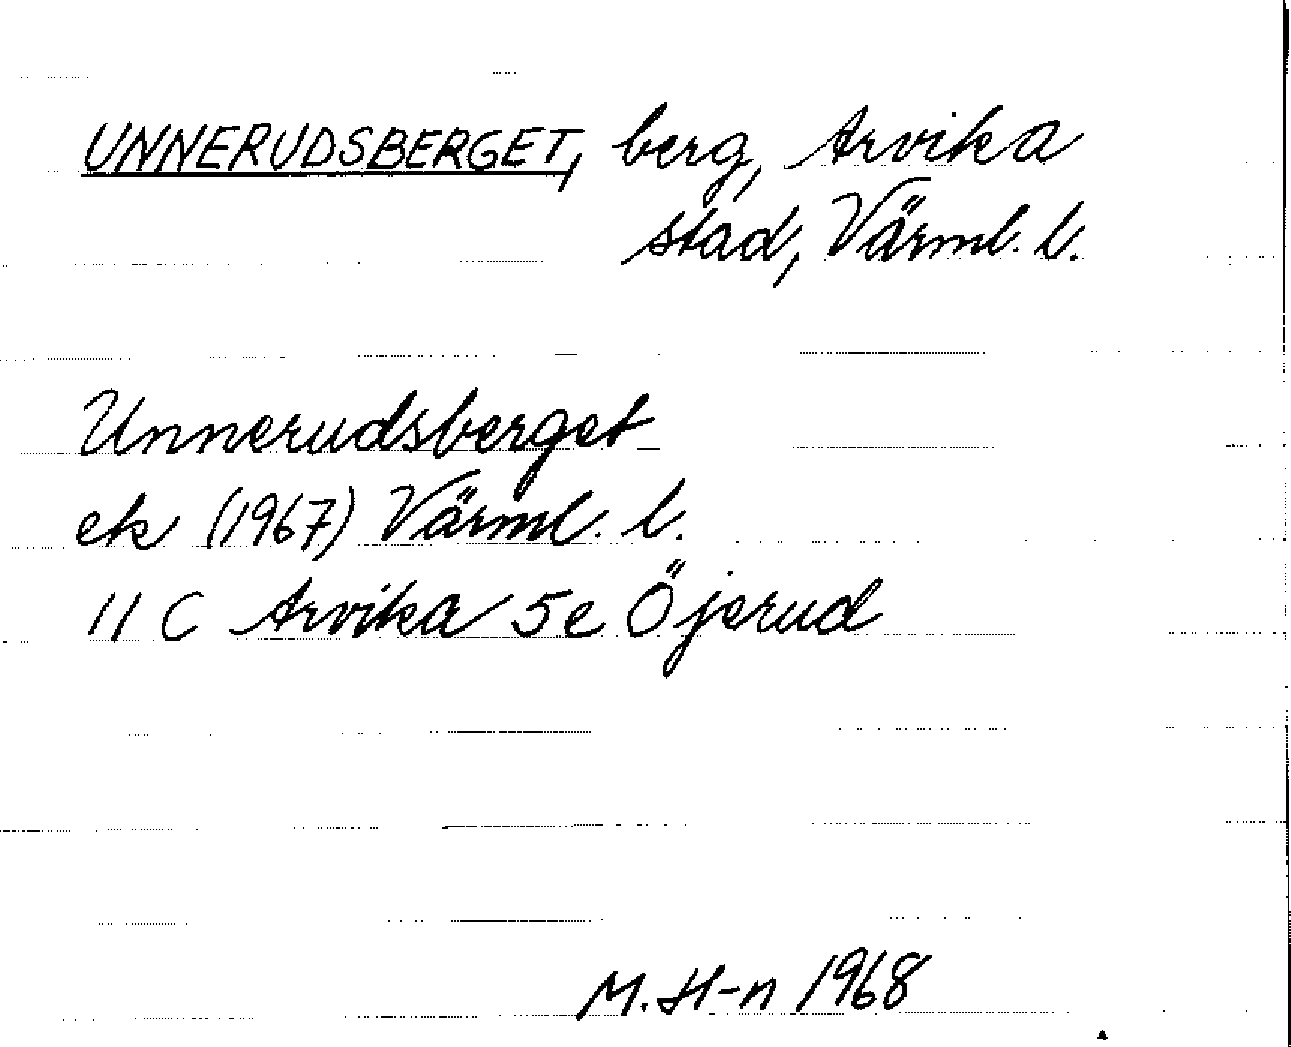 UNNERUDSBERGET, berg, Arvika
stad, Värml. l.
Unnerudsberget
ek (1967) Värml. l.
11 C Arvika 5e Öjerud
M. H-n 1968